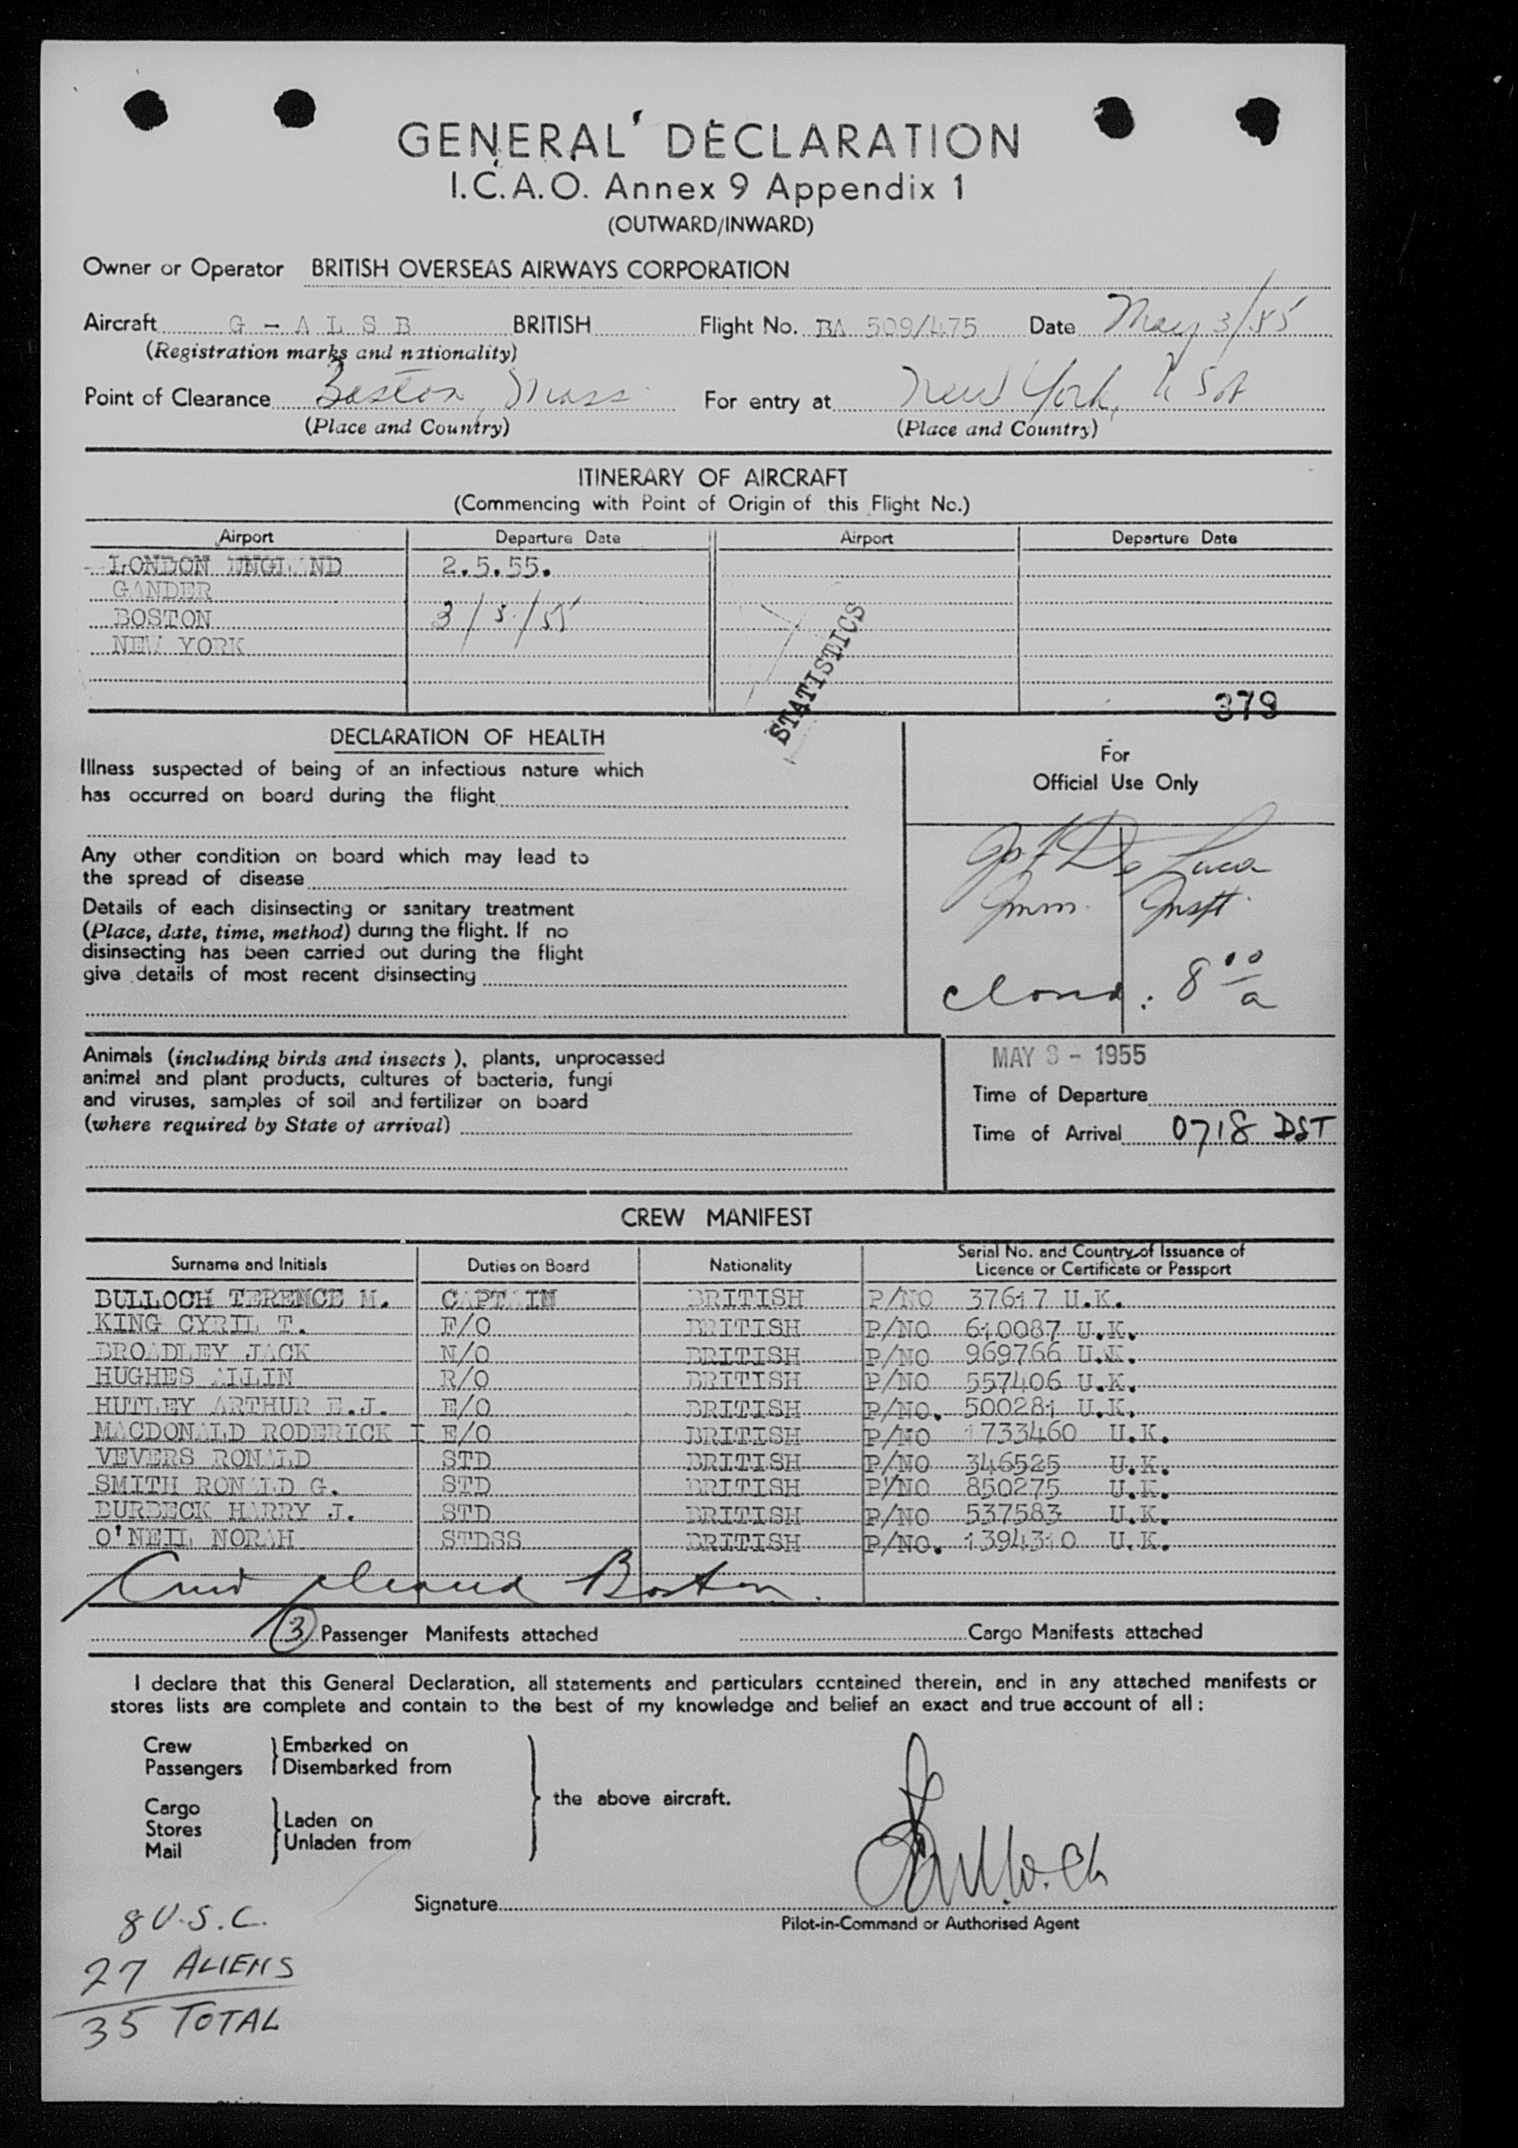 GENERAL DECLARATION
I.C.A.O. Annex 9 Appendix 1
(OUTWARD/INWARD)
Owner or Operator BRITISH OVERSEAS AIRWAYS CORPORATION
Aircraft G - A L S B BRITISH Flight No. BA 509/475 Date May 3/55
(Registration marks and nationality)
Point of Clearance Boston, Mass For entry at New York, U S A
(Place and Country) (Place and Country)
ITINERARY OF AIRCRAFT
(Commencing with Point of Origin of this Flight No.)
Airport Departure Date Airport Departure Date
LONDON ENGLAND 2.5.55.
GANDER
BOSTON 3/5/55
NEW YORK
STATISTICS
379
DECLARATION OF HEALTH
Illness suspected of being of an infectious nature which
has occurred on board during the flight
Any other condition on board which may lead to
the spread of disease
Details of each disinsecting or sanitary treatment
(Place, date, time, method) during the flight. If no
disinsecting has been carried out during the flight
give details of most recent disinsecting
For
Official Use Only
De Luca
Imm. Inspt.
8 00 a
Animals (including birds and insects), plants, unprocessed
animal and plant products, cultures of bacteria, fungi
and viruses, samples of soil and fertilizer on board
(where required by State of arrival)
MAY 3 - 1955
Time of Departure
Time of Arrival 0718 DST
CREW MANIFEST
Surname and Initials Duties on Board Nationality Serial No. and Country of Issuance of
Licence or Certificate or Passport
BULLOCH TERENCE M. CAPTAIN BRITISH P/NO 37617 U.K.
KING CYRIL T. F/O BRITISH P/NO 610087 U.K.
BROADLEY JACK N/O BRITISH P/NO 969766 U.K.
HUGHES ALLIN R/O BRITISH P/NO 557406 U.K.
HUTLEY ARTHUR E.J. E/O BRITISH P/NO. 500281 U.K.
MACDONALD RODERICK I E/O BRITISH P/NO 1733460 U.K.
VEVERS RONALD STD BRITISH P/NO 346525 U.K.
SMITH RONALD G. STD BRITISH P/NO 850275 U.K.
BURBECK HARRY J. STD BRITISH P/NO 537583 U.K.
O'NEIL NORAH STDSS BRITISH P/NO. 1394310 U.K.
Boston
3 Passenger Manifests attached Cargo Manifests attached
I declare that this General Declaration, all statements and particulars contained therein, and in any attached manifests or
stores lists are complete and contain to the best of my knowledge and belief an exact and true account of all :
Crew Embarked on
Passengers Disembarked from
the above aircraft.
Cargo
Stores Laden on
Mail Unladen from
Signature Bulloch
Pilot-in-Command or Authorised Agent
8 U.S.C.
27 ALIENS
35 TOTAL